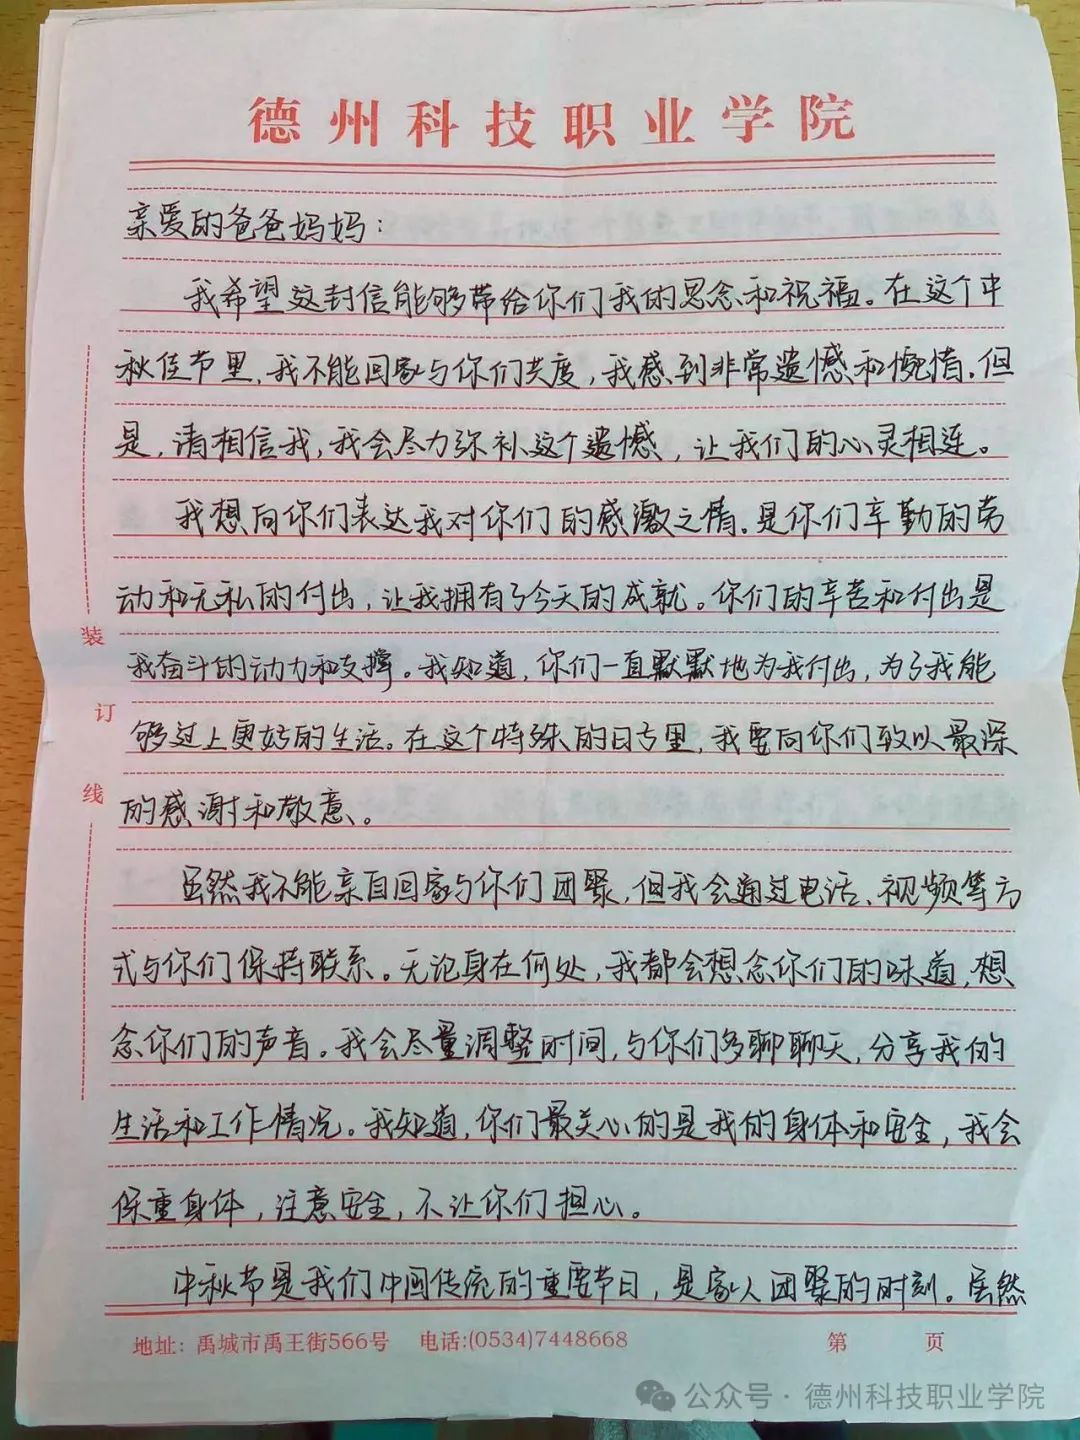 德州科技职业学院
亲爱的爸爸妈妈：
我希望这封信能够带给你们我的思念和祝福。在这个中
秋佳节里，我不能回家与你们共度，我感到非常遗憾和惋惜。但
是，请相信我，我会尽力弥补这个遗憾，让我们的心灵相连。
我想向你们表达我对你们的感激之情。是你们辛勤的劳
动和无私的付出，让我拥有了今天的成就。你们的辛苦和付出是
我奋斗的动力和支撑。我知道，你们一直默默地为我付出，为了我能
够过上更好的生活。在这个特殊的日子里，我要向你们致以最深
的感谢和敬意。
虽然我不能亲自回家与你们团聚，但我会通过电话、视频等方
式与你们保持联系。无论身在何处，我都会想念你们的味道，想
念你们的声音。我会尽量调整时间，与你们多聊聊天，分享我的
生活和工作情况。我知道，你们最关心的是我的身体和安全，我会
保重身体，注意安全，不让你们担心。
中秋节是我们中国传统的重要节日，是家人团聚的时刻。虽然
装
订
线
地址：禹城市禹王街566号 电话:(0534)7448668 第 页
公众号·德州科技职业学院